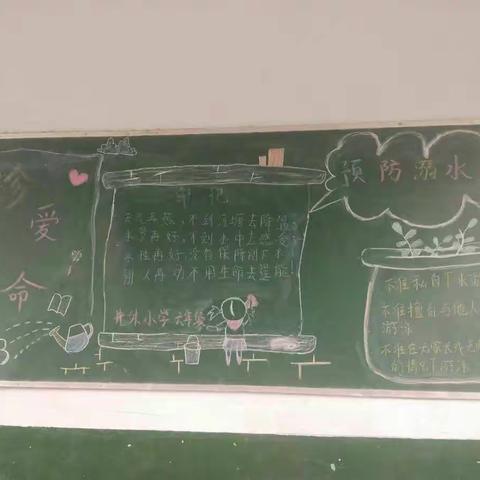 珍
爱
命
牢记
天气再热,不到河塘去降温
水景再好,不到水中去感受
水性再好,没有保障别下水
别人再劝不用生命去逞能
小学六年级
预防溺水
不准私自下水游
不准擅自与他人
游泳
不准在无家长或老师
的情况下游泳